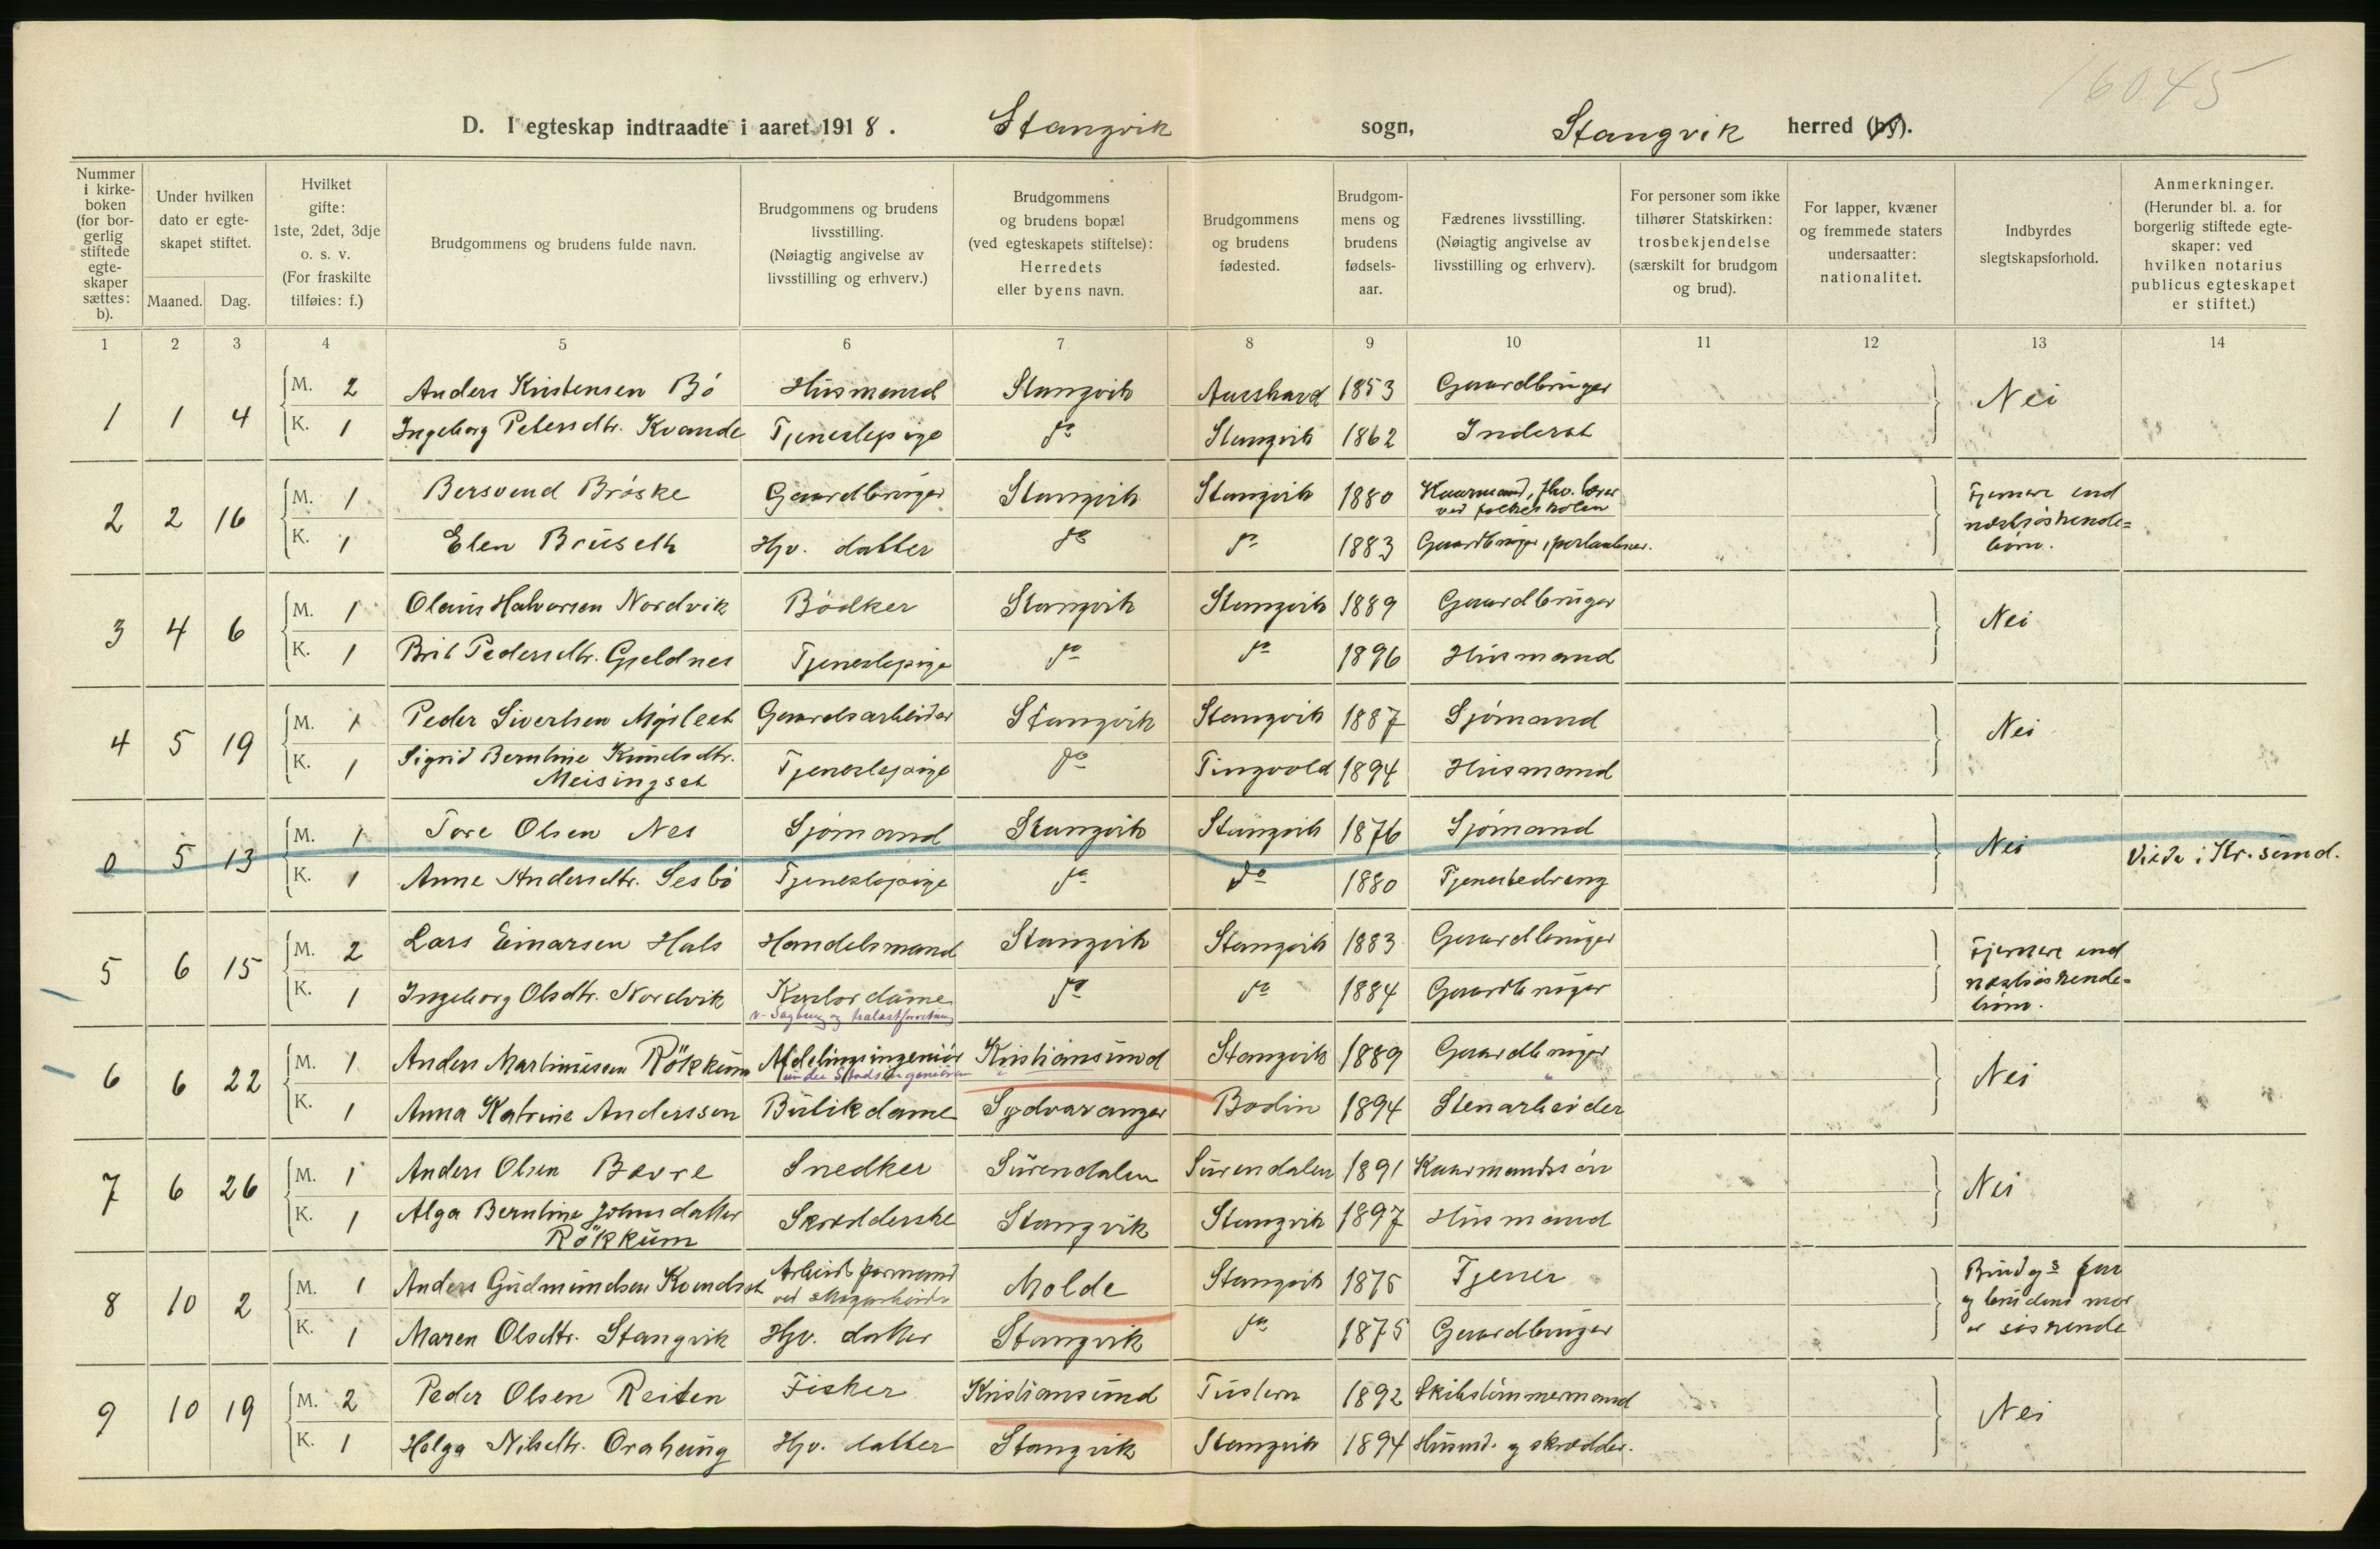 16045
D. I egteskap indtraadte i aaret 1918. Stangvik sogn, Stangvik herred (by).
Nummer i kirkeboken (for borgerlig stiftede egteskaper sættes: b).
Under hvilken dato er egteskapet stiftet.
Maaned. Dag.
Hvilket gifte: 1ste, 2det, 3dje o. s. v. (For fraskilte tilføies: f.)
Brudgommens og brudens fulde navn.
Brudgommens og brudens livsstilling. (Nøiagtig angivelse av livsstilling og erhverv.)
Brudgommens og brudens bopæl (ved egteskapets stiftelse): Herredets eller byens navn.
Brudgommens og brudens fødested.
Brudgommens og brudens fødselsaar.
Fædrenes livsstilling. (Nøiagtig angivelse av livsstilling og erhverv).
For personer som ikke tilhører Statskirken: trosbekjendelse (særskilt for brudgom og brud).
For lapper, kvæner og fremmede staters undersaatter: nationalitet.
Indbyrdes slegtskapsforhold.
Anmerkninger. (Herunder bl. a. for borgerlig stiftede egteskaper: ved hvilken notarius publicus egteskapet er stiftet.)
1 2 3 4 5 6 7 8 9 10 11 12 13 14
1 1 4 M. 2 Anders Kristensen Bö Husmand Stangvik 1853 Gaardbruger Nei
K. 1 Ingeborg Petersdtr. Kvande Tjenestepige do Stangvik 1862 Inderst
2 2 16 M. 1 Bersvend Bröske Gaardbruger Stangvik Stangvik 1880 Kaarmand, fhv. lærer ved folkeskolen Fjernere end næstsöskendebörn.
K. 1 Elen Brüseth Hjv. datter do do 1883 Gaardbruger,
3 4 6 M. 1 Olaus Halvorsen Nordvik Bödker Stangvik Stangvik 1889 Gaardbruger Nei
K. 1 Brit Pedersdtr. Gjeldnes Tjenestepige do do 1896 Husmand
4 5 19 M. 1 Peder Sivertsen Mýsleet Gaardsarbeider Stangvik Stangvik 1887 Sjömand Nei
K. 1 Sigrid Berntine Knudsdtr. Meisingset Tjenestepige do Tingvold 1894 Husmand
0 5 13 M. 1 Tore Olsen Nes Sjömand Stangvik Stangvik 1876 Sjömand Nei Viede i Kr.sund.
K. 1 Anne Andersdtr. Sesbö Tjenestepige do do 1880 Tjenestedreng
5 6 15 M. 2 Lars Einarsen Hals Handelsmand Stangvik Stangvik 1883 Gaardbruger Fjernere end næstsöskendebörn.
K. 1 Ingeborg Olsdtr. Nordvik Kontordame v. Sagbrug og trælastforretning do do 1884 Gaardbruger
6 6 22 M. 1 Anders Martinusen Rökkum Afdelingsingeniör under Stadsingeniören Kristiansund Stangvik 1889 Gaardbruger Nei
K. 1 Anna Katrine Anderssen Butikdame Sydvaranger Bodin 1894 Stenarbeider
7 6 26 M. 1 Anders Olsen Bævre Snedker Surendalen Surendalen 1891 Kaarmandssön Nei
K. 1 Alga Berntine Johnsdatter Rökkum Skrædderske Stangvik Stangvik 1897 Husmand
8 10 2 M. 1 Anders Gudmundsen Kvendset Arbeidsformand ved skogarbeide Molde Stangvik 1875 Tjener Brudgs far og brudens mor er söskende
K. 1 Maren Olsdtr. Stangvik Hjv. datter Stangvik do 1875 Gaardbruger
9 10 19 M. 2 Peder Olsen Reiten Fisker Kristiansund Tustern 1892 Skibstömmermand Nei
K. 1 Helga Nilsdtr. Orahaug Hjv. datter Stangvik Stangvik 1894 Husmd. og skrædder.